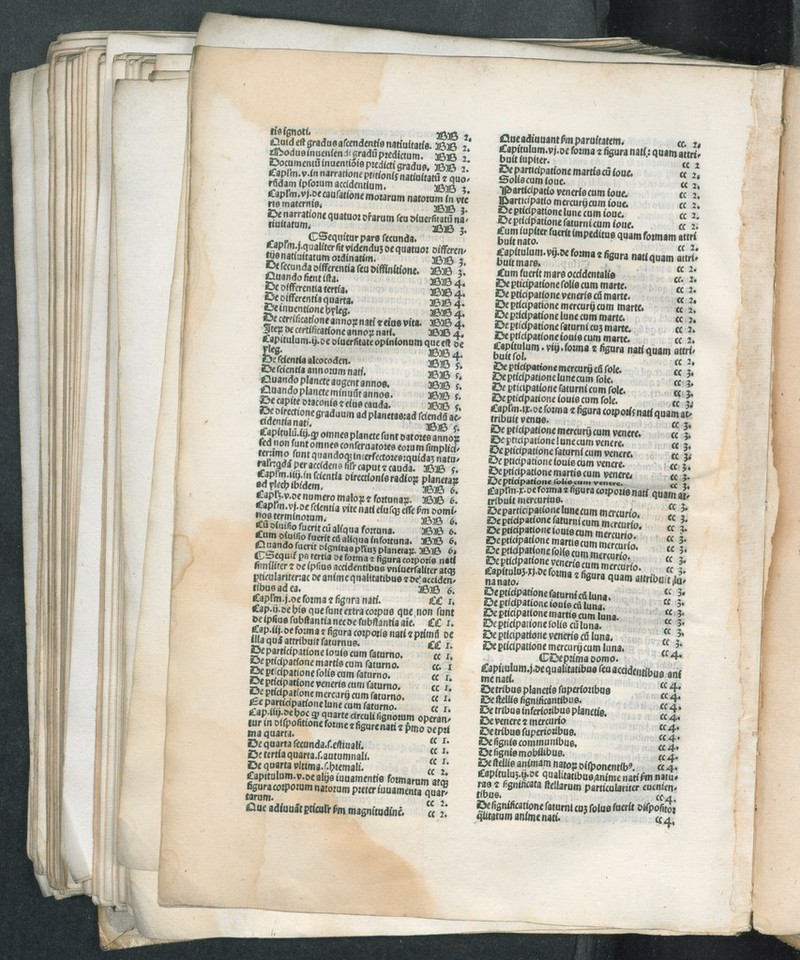 tis ignoti. BB 2.
Quid est gradus ascendentis natiuitatis. BB 2.
Modus inueniendi gradū predictum. BB 2.
Documentū inuentiōis predicti gradus. BB 2.
Capłm.v.in narratione ptitionis natiuitatū ⁊ quo-
rūdam ipsorum accidentium. BB 3.
Capłm.vj.de causatione morarum natorum in vte
ris maternis. BB 3.
De narratione quatuor drarum seu diuersitatū na-
tiuitatum. BB 3.
¶Sequitur pars secunda.
Capłm.j.qualiter sit videndū de quatuor differen-
tijs natiuitatum ordinatim. BB 3.
De secunda differentia seu diffinitione. BB 3.
Quando fient ista. BB 4.
De differentia tertia. BB 4.
De differentia quarta. BB 4.
De inuentione hyleg. BB 4.
De certificatione annoꝝ nati ⁊ eius vita. BB 4.
Iteꝝ de certificatione annoꝝ nati. BB 4.
Capitulum.ij.de diuersitate opinionum que est de
yleg. BB 4.
De scientia alcocoden. BB 5.
De scientia annorum nati. BB 5.
Quando planete augent annos. BB 5.
Quando planete minuūt annos. BB 5.
De capite draconis ⁊ eius cauda. BB 5.
De directione graduum ad planetas:ad sciendū ac-
cidentia nati. BB 5.
Capitulū.iij.ꝙ omnes planete sunt datores annoꝝ
sed non sunt omnes conseruatores eorum simplici-
ter:imo sunt quandoqꝫ interfectores:quidaꝫ natu-
ralr:qdā per accidens siłr caput ⁊ cauda. BB 5.
Capłm.iiij.in scientia directionis radioꝝ planetaꝝ
ad ylech ibidem. BB 6.
Capłꝫ.v.de numero maloꝝ ⁊ fortunaꝝ. BB 6.
Capłm.vj.de scientia vite nati eiusqꝫ esse ꝑm domi-
nos terminorum. BB 6.
Cū diuisio fuerit cū aliqua fortuna. BB 6.
Cum diuisio fuerit cū aliqua infortuna. BB 6.
Quando fuerit dignitas płius planetaꝝ. BB 6.
¶Sequit̄ ps tertia de forma ⁊ figura corporis nati
similiter ⁊ de ipsius accidentibus vniuersaliter atqꝫ
pticulariter:ac de anime qualitatibus ⁊ de acciden-
tibus ad ea. BB 6.
Capłm.j.de forma ⁊ figura nati. CC 1.
Cap.ij.de his que sunt extra corpus que non sunt
de ipsius substantia nec de substantia aie. CC 1.
Cap.iij.de forma ⁊ figura corporis nati ⁊ primū de
illa quā attribuit saturnus. CC 1.
De participatione iouis cum saturno. cc 1.
De pticipatione martis cum saturno. cc. 1
De pticipatione solis cum saturno. cc 1.
De pticipatione veneris cum saturno. cc 1.
De pticipatione mercurij cum saturno. cc 1.
De participatione lune cum saturno. cc 1.
Cap.iiij.de hoc ꝙ quarte circuli signorum operan-
tur in dispositione forme ⁊ figure nati ⁊ pmo de pri
ma quarta. cc 1.
De quarta secunda.s.estiuali. cc 1.
De tertia quarta.s.autumnali. cc 1.
De quarta vltima.s.hiemali. cc 2.
Capitulum.v.de alijs iuuamentis formarum atqꝫ
figura corporum natorum preter iuuamenta quar-
tarum. cc 2.
Que adiuuāt pticulr ꝑm magnitudinē. cc 2.
Que adiuuant ꝑm paruitatem. cc. 2.
Capitulum.vj.de forma ⁊ figura nati: quam attri-
buit iupiter. cc 2
De participatione martis cū ioue. cc 2.
Solis cum ioue. cc 2.
Participatio veneris cum ioue. cc 2.
Participatio mercurij cum ioue. cc 2.
De pticipatione lune cum ioue. cc 2.
De pticipatione saturni cum ioue. cc 2.
Cum iupiter fuerit impeditus quam formam attri
buit nato. cc 2.
Capitulum.vij.de forma ⁊ figura nati quam attri-
buit mars. cc 2.
Cum fuerit mars occidentalis cc. 2.
De pticipatione solis cum marte. cc 2.
De pticipatione veneris cū marte. cc 2.
De pticipatione mercurij cum marte. cc 2.
De pticipatione lune cum marte. cc 2.
De pticipatione saturni cuꝫ marte. cc 2.
De pticipatione iouis cum marte. cc 2.
Capitulum. viij. forma ⁊ figura nati quam attri-
buit sol. cc 2.
De pticipatione mercurij cū sole. cc 3.
De pticipatione lune cum sole. cc 3.
De pticipatione saturni cum sole. cc 3.
De pticipatione iouis cum sole. cc 3.
Capłm.ix.de forma ⁊ figura corporis nati quam at-
tribuit venus. cc 3.
De pticipatione mercurij cum venere. cc 3.
De pticipatione lune cum venere. cc 3.
De pticipatione saturni cum venere. cc 3.
De pticipatione iouis cum venere. cc 3.
De pticipatione martis cum venere. cc 3.
De pticipatione solis cum venere. cc 3.
Capłm.x.de forma ⁊ figura corporis nati quam at-
tribuit mercurius. cc 3.
De participatione lune cum mercurio. cc 3.
De pticipatione saturni cum mercurio. cc 3.
De pticipatione iouis cum mercurio. cc 3.
De pticipatione martis cum mercurio. cc 3.
De pticipatione solis cum mercurio. cc 3.
De pticipatione veneris cum mercurio. cc 3.
Capituluꝫ.xj.de forma ⁊ figura quam attribuit lu-
na nato. cc 3.
De pticipatione saturni cū luna. cc 3.
De pticipatione iouis cū luna. cc 3.
De pticipatione martis cum luna. cc 3.
De pticipatione solis cū luna. cc 3.
De pticipatione veneris cū luna. cc 3.
De pticipatione mercurij cum luna. cc 4.
¶De prima domo.
Capitulum.j.de qualitatibus seu accidentibus ani
me nati. cc 4.
De tribus planetis superioribus cc 4.
De stellis significantibus. cc 4.
De tribus inferioribus planetis. cc 4.
De venere ⁊ mercurio cc 4.
De tribus superioribus. cc 4.
De signis communibus. cc 4.
De signis mobilibus. cc 4.
De stellis animam natoꝝ disponentibꝰ. cc 4.
Capituluꝫ.ij.de qualitatibus anime nati ꝑm natu-
ras ⁊ significata stellarum particulariter euenien-
tibus. cc 4.
De significatione saturni cuꝫ solus fuerit dispositor
q̄litatum anime nati. cc 4.